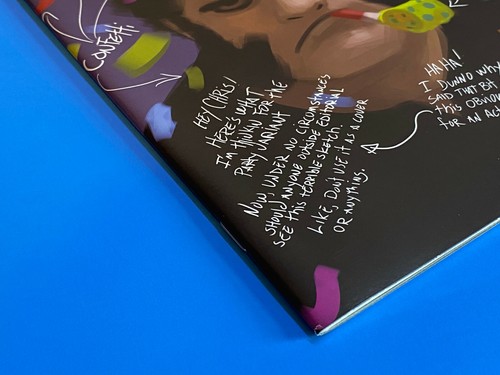 CONFETTI
HEY CHRIS!
HERE'S WHAT
I'M THINKIN FOR THE
PARTY VARIANT
NOW, UNDER NO CIRCUMSTANCES
SHOULD ANYONE OUTSIDE EDITORIAL
SEE THIS TERRIBLE SKETCH.
LIKE, DON'T USE IT AS A COVER
OR ANYTHING.
HAHA!
I DUNNO WHY
SAID THAT BIT
THIS OBVIOU
FOR AN ACT